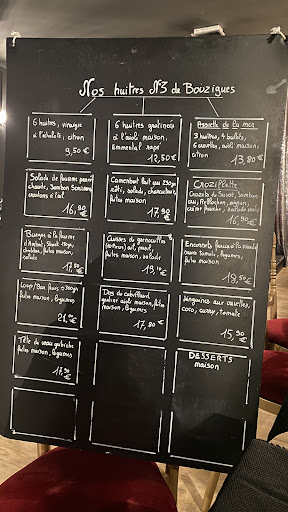 Nos huîtres N3 de Bouzigues
6 huîtres, vinaigre
à l'échalote, citron
9,50€
6 huîtres gratinées
à l'aïoli maison,
Emmental rapé
12,50€
Assiette de la mer
3 huîtres, 4 bulots,
6 crevettes, aïoli maison,
citron
13,80€
Salade de
chauds, Jambon Serrano,
croutons d'ail
16,90€
Camembert rôti 250g
rôti, salade, charcuterie,
frites maison
17,90€
CROZIflette
Crozets de Savoie, Jambon
cru, Reblochon, oignon,
crème fraîche, salade
16,90€
Burger à la
d'Ambert, Steak 180g,
cheddar, frites maison,
salade
Cuisses de grenouilles
ail, persil,
frites maison, salade
19,10€
Encornets
sauce tomate, légumes,
frites maison
18,50€
Loup/Bar
maison, légumes
21,00€
Dos de cabillaud
gratiné aïoli maison, frites
maison, légumes
17,80€
Linguines aux crevettes,
coco, curry, tomate
15,90€
Tête de veau gribiche
frites maison, légumes
17,90€
DESSERTS
maison